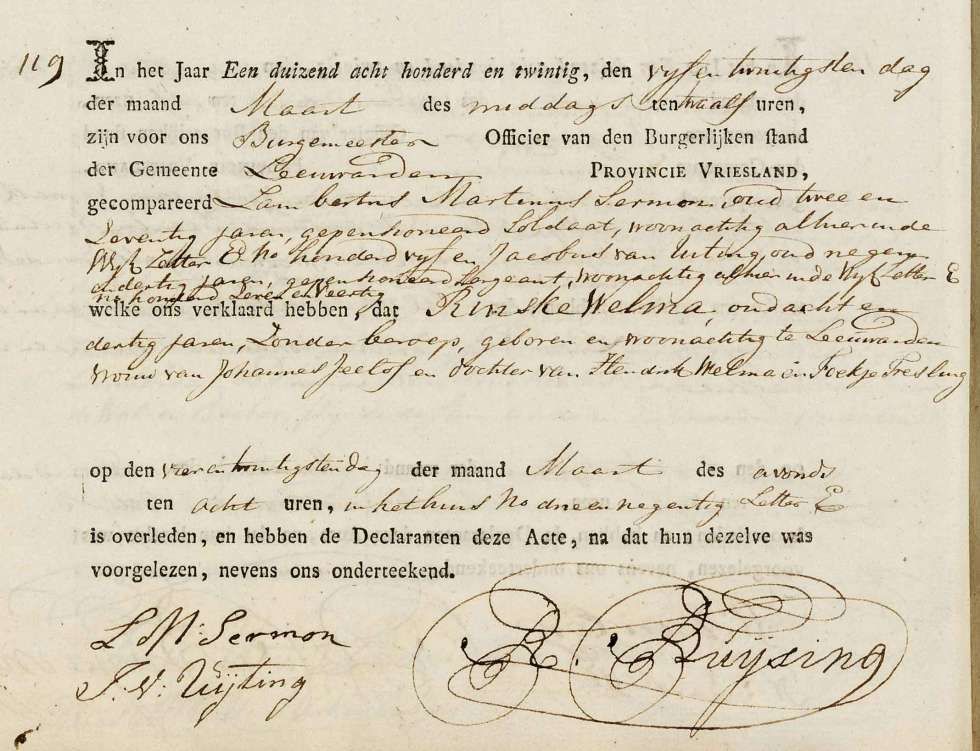 119
In het Jaar Een duizend acht honderd en twintig, den vyf en twintigsten dag
der maand Maart des middags ten twaalf uren,
zijn voor ons Burgemeester Officier van den Burgerlijken stand
der Gemeente Leeuwarden PROVINCIE VRIESLAND,
gecompareerd Lambertus Martinus Sermon, oud twee en
Zeventig jaren, gepensioneerd Soldaat, woonachtig alhier in de
Wyk Letter E No honderd vyf en Jacobus van Uiting, oud negen
en dertig jaren, gepensioneerd Sergeant, woonachtig alhier in de Wyk Letter E
no honderd Zeven en Veertig
welke ons verklaard hebben, dat Rinske Welma, oud acht en
dertig jaren, Zonder beroep, geboren en woonachtig te Leeuwarden
vrouw van Johannes Jeelof en dochter van Hendrik Welma en Foekje Tresling
op den vier en twintigsten dag der maand Maart des avonds
ten acht uren, in het huis No drie en negentig Letter E
is overleden, en hebben de Declaranten deze Acte, na dat hun dezelve was
voorgelezen, nevens ons onderteekend.
L M: Sermon
J: V: Uijting
R. Buijsing